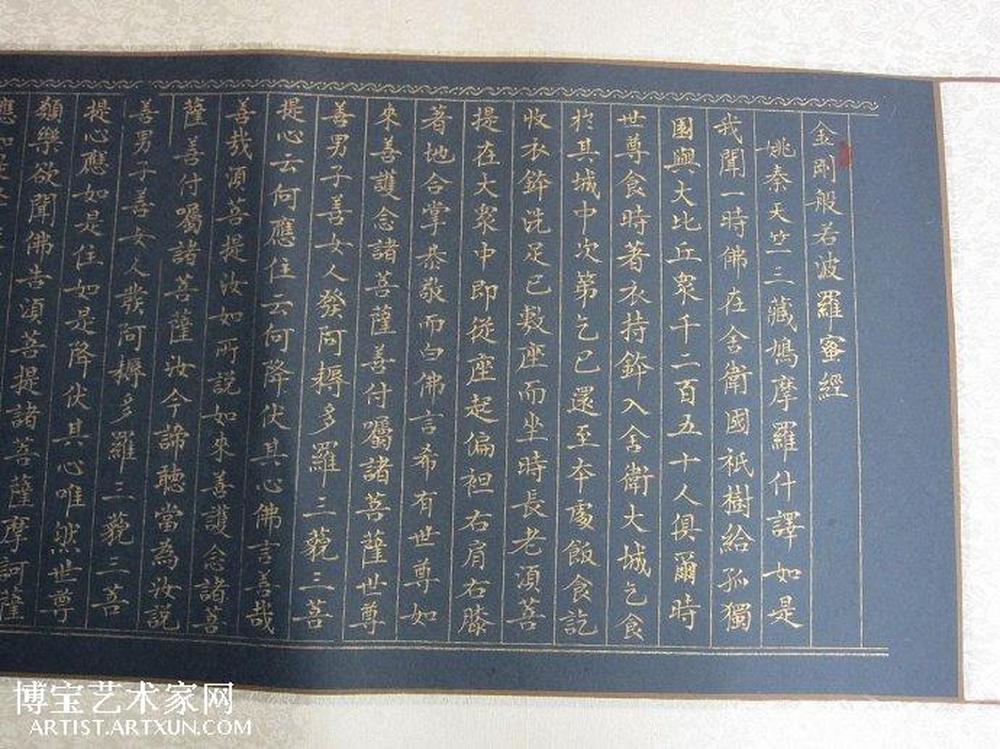 金剛般若波羅蜜經
姚秦天竺三藏鳩摩羅什譯如是
我聞一時佛在舍衛國祇樹給孤獨
園與大比丘眾千二百五十人俱爾時
世尊食時著衣持鉢入舍衛大城乞食
於其城中次第乞已還至本處飯食訖
收衣鉢洗足已敷座而坐時長老須菩
提在大眾中即從座起偏袒右肩右膝
著地合掌恭敬而白佛言希有世尊如
來善護念諸菩薩善付囑諸菩薩世尊
善男子善女人發阿耨多羅三藐三菩
提心云何應住云何降伏其心佛言善哉
善哉須菩提汝如所說如來善護念諸菩
薩善付囑諸菩薩汝今諦聽當為汝說
善男子善女人發阿耨多羅三藐三菩
提心應如是住如是降伏其心唯然世尊
願樂欲聞佛告須菩提諸菩薩摩訶薩
博宝艺术家网
ARTIST.ARTXUN.COM